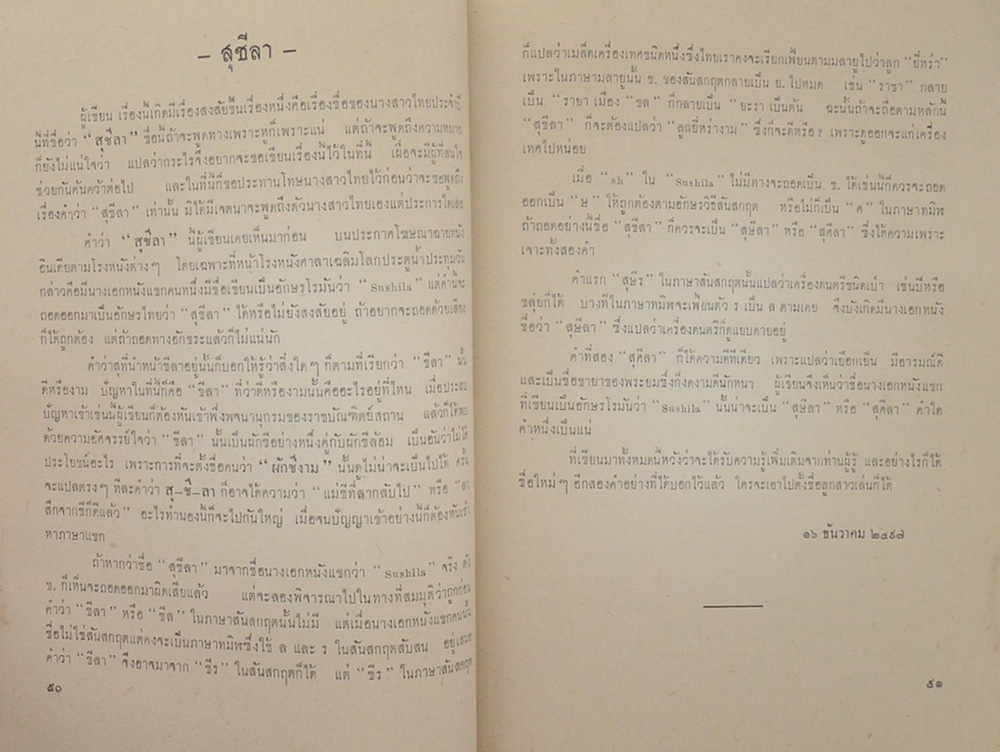 – สุชีลา –
ผู้เขียน เรื่องนี้เกิดมีเรื่องสงสัยขึ้นเรื่องหนึ่งคือเรื่องชื่อของนางสาวไทยประจำปี
นี้ที่ชื่อว่า “สุชีลา” ชื่อนี้ถ้าจะพูดทางเพราะหูก็เพราะแน่ แต่ถ้าจะพูดถึงความหมาย
ก็ยังไม่แน่ใจว่า แปลว่ากระไรจึงอยากจะขอเขียนเรื่องนี้ไว้ในที่นี้ เผื่อจะมีผู้ที่สนใจ
ช่วยกันค้นคว้าต่อไป และในที่นี้ก็ขอประทานโทษนางสาวไทยไว้ก่อนว่าจะขอพูดถึง
เรื่องคำว่า “สุชีลา” เท่านั้น มิได้มีเจตนาจะพูดถึงตัวนางสาวไทยเองแต่ประการใดเลย
คำว่า “สุชีลา” นี้ผู้เขียนเคยเห็นมาก่อน บนประกาศโฆษณาฉายหนัง
อินเดียตามโรงหนังต่างๆ โดยเฉพาะที่หน้าโรงหนังศาลาเฉลิมโลกประตูน้ำประทุมวัน
กล่าวคือมีนางเอกหนังแขกคนหนึ่งมีชื่อเขียนเป็นอักษรโรมันว่า “Sushila” แต่คำนี้จะ
ถอดออกมาเป็นอักษรไทยว่า “สุชีลา” ได้หรือไม่ยังสงสัยอยู่ ถ้าอยากจะถอดด้วยเสียง
ก็ได้ถูกต้อง แต่ถ้าถอดทางอักขระแล้วก็ไม่แน่นัก
คำว่าสุที่นำหน้าชีลาอยู่นั้นก็บอกให้รู้ว่าสิ่งใดๆ ก็ตามที่เรียกว่า “ชีลา” นั้น
ดีหรืองาม ปัญหาในที่นี้ก็คือ “ชีลา” ที่ว่าดีหรืองามนั้นคืออะไรอยู่ที่ไหน เมื่อประสบ
ปัญหาเข้าเช่นนี้ผู้เขียนก็ต้องหันเข้าพึ่งพจนานุกรมของราชบัณฑิตย์สถาน แล้วก็ได้พบ
ด้วยความอัศจรรย์ใจว่า “ชีลา” นั้นเป็นผักชีอย่างหนึ่งคู่กับผักชีล้อม เป็นอันว่าไม่ได้
ประโยชน์อะไร เพราะการที่จะตั้งชื่อคนว่า “ผักชีงาม” นั้นดูไม่น่าจะเป็นไปได้ ครั้น
จะแปลตรงๆ ทีละคำว่า สุ–ชี–ลา ก็อาจได้ความว่า “แม่ชีที่ลากลับไป” หรือ “ลา
สึกจากชีก็ดีแล้ว” อะไรทำนองนี้ก็จะไปกันใหญ่ เมื่อจนปัญญาเข้าอย่างนี้ก็ต้องหันเข้า
หาภาษาแขก
ถ้าหากว่าชื่อ “สุชีลา” มาจากชื่อนางเอกหนังแขกว่า “Sushila” จริง ตัว
ช. ก็เห็นจะถอดออกมาผิดเสียแล้ว แต่จะลองพิจารณาไปในทางที่สมมุติว่าถูกก่อน
คำว่า “ชีลา” หรือ “ชีล” ในภาษาสันสกฤตนั้นไม่มี แต่เมื่อนางเอกหนังแขกคนนั้น
ชื่อไม่ใช่สันสกฤตแต่คงจะเป็นภาษาทมิฬซึ่งใช้ ล และ ร ในสันสกฤตสับสน อยู่เสมอ
คำว่า “ชีลา” จึงอาจมาจาก “ชีร” ในสันสกฤตก็ได้ แต่ “ชีร” ในภาษาสันสกฤต
๕๐
ก็แปลว่าเมล็ดเครื่องเทศชนิดหนึ่งซึ่งไทยเราคงจะเรียกเพี้ยนตามมลายูไปว่าลูก “ยี่หร่า”
เพราะในภาษามลายูนั้น ช. ของสันสกฤตกลายเป็น ย. ไปหมด เช่น “ราชา” กลาย
เป็น “รายา เมือง “ชล” ก็กลายเป็น “ยะรา เป็นต้น ฉะนั้นถ้าจะถือตามหลักนี้
“สุชีลา” ก็จะต้องแปลว่า “ลูกยี่หร่างาม” ซึ่งก็จะดีหรือ? เพราะดูออกจะแก่เครื่อง
เทศไปหน่อย
เมื่อ “sh” ใน “Sushila” ไม่มีทางจะถอดเป็น ช. ได้เช่นนี้ก็ควรจะถอด
ออกเป็น “ษ” ให้ถูกต้องตามอักษรวิธีสันสกฤต หรือไม่ก็เป็น “ศ” ในภาษาทมิฬ
ถ้าถอดอย่างนี้ชื่อ “สุชีลา” ก็ควรจะเป็น “สุษีลา” หรือ “สุศีลา” ซึ่งได้ความเพราะ
เจาะทั้งสองคำ
คำแรก “สุษีร” ในภาษาสันสกฤตนั้นแปลว่าเครื่องดนตรีชนิดเป่า เช่นปี่หรือ
ขลุ่ยก็ได้ บางทีในภาษาทมิฬจะเพี้ยนตัว ร เป็น ล ตามเคย จึงบังเกิดมีนางเอกหนัง
ชื่อว่า “สุษีลา” ซึ่งแปลว่าเครื่องดนตรีก็ดูแยบคายอยู่
คำที่สอง “สุศีลา” ก็ได้ความดีทีเดียว เพราะแปลว่าเยือกเย็น มีอารมณ์ดี
และเป็นชื่อชายาของพระยมซึ่งก็งดงามดีนักหนา ผู้เขียนจึงเห็นว่าชื่อนางเอกหนังแขก
ที่เขียนเป็นอักษรโรมันว่า “Sushila” นั้นน่าจะเป็น “สุษีลา” หรือ “สุศีลา” คำใด
คำหนึ่งเป็นแน่
ที่เขียนมาทั้งหมดนี้หวังว่าจะได้รับความรู้เพิ่มเติมจากท่านผู้รู้ และอย่างไรก็ได้
ชื่อใหม่ๆ อีกสองคำอย่างที่ได้บอกไว้แล้ว ใครจะเอาไปตั้งชื่อลูกสาวเล่นก็ได้
๑๖ ธันวาคม ๒๔๙๗
๕๑